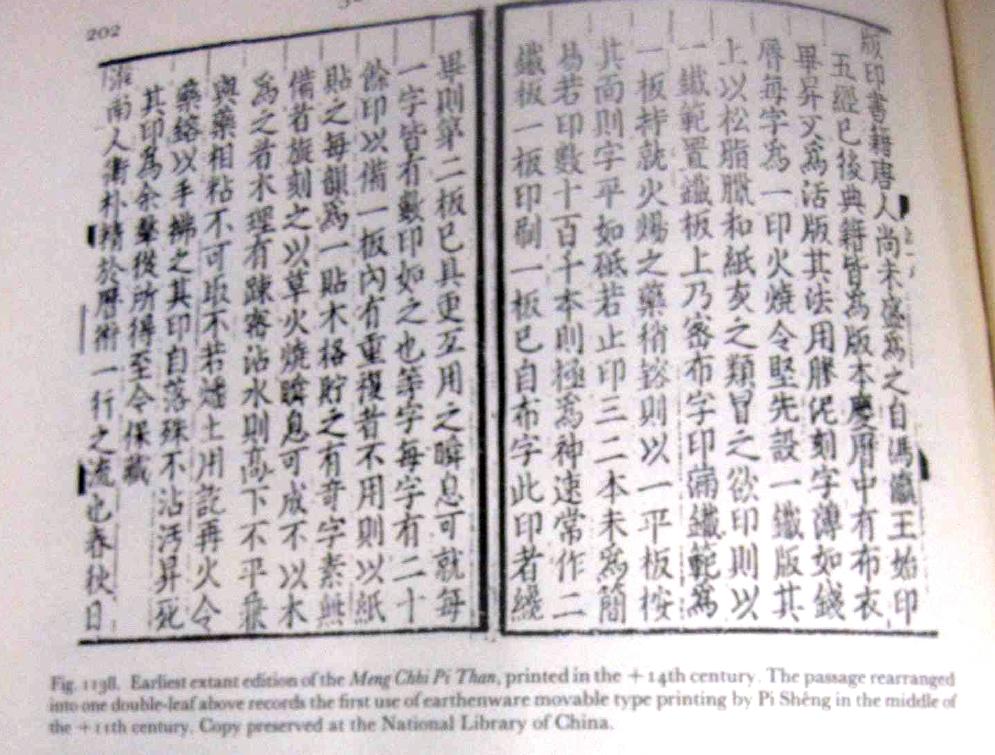 202
版印書籍唐人尚未盛爲之自馮瀛王始印
五經已後典籍皆爲版本慶曆中有布衣
畢昇又爲活版其法用膠泥刻字薄如錢
脣每字爲一印火燒令堅先設一鐵版其
上以松脂臘和紙灰之類冒之欲印則以
一鐵範置鐵板上乃密布字印滿鐵範爲
一板持就火煬之藥稍鎔則以一平板按
其面則字平如砥若止印三二本未爲簡
易若印數十百千本則極爲神速常作二
鐵板一板印刷一板已自布字此印者纔
畢則第二板已具更互用之瞬息可就每
一字皆有數印如之也等字每字有二十
餘印以備一板內有重複者不用則以紙
貼之每韻爲一貼木格貯之有奇字素無
備者旋刻之以草火燒瞬息可成不以木
爲之者木理有踈密沾水則高下不平兼
與藥相粘不可取不若燔土用訖再火令
藥鎔以手拂之其印自落殊不沾汚昇死
其印爲余羣從所得至今保藏
淮南人衛朴精於曆術一行之流也春秋日
Fig. 1138. Earliest extant edition of the Meng Chhi Pi Than, printed in the + 14th century. The passage rearranged
into one double-leaf above records the first use of earthenware movable type printing by Pi Shêng in the middle of
the + 11th century. Copy preserved at the National Library of China.